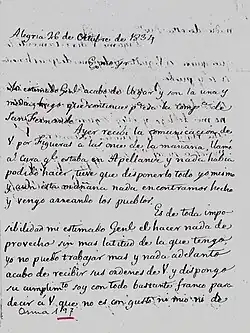 Alegria 26 de Octubre de 1834
mi estimado Genl acabo de llegar y son la una y
media y tengo que continuar p.a de la comp.a de
San Fernando.
Ayer recibi la comunicacion de
V. por Figueras a las once de la mañana, llamé
a Cura ql estaba en Apellaniz y nada habia
podido hacer, tuve que disponerlo todo yo mismo
y aun esta mañana nada encontramos hecho
y vengo arreando los pueblos.
Es de toda impo-
sibilidad mi estimado Genl el hacer nada de
provecho sin mas latitud de la que tengo,
yo no puedo trabajar mas y nada adelanto
acabo de recibir sus ordenes de V. y dispongo
su cumplimto soy con todo bastante franco para
decir a V. que no es con gusto no mio ni de